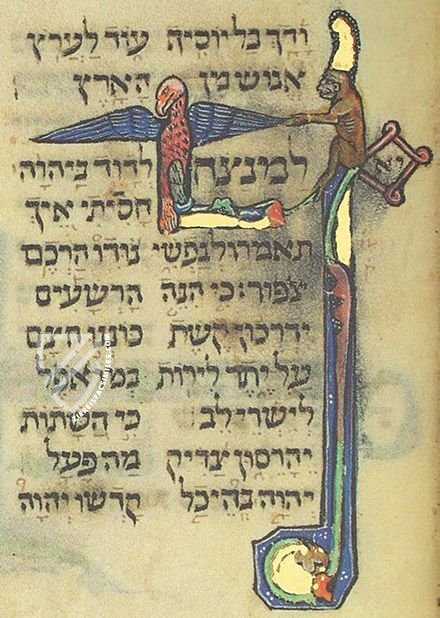 ודך בל יוסיף עוד לערץ
אנוש מן הארץ
למנצח לדוד ביהוה
יא
חסיתי איך
תאמרו לנפשי נודו הרכם
צפור כי הנה הרשעים
ידרכון קשת כוננו חצם
על יתר לירות במו אפל
לישרי לב כי השתות
יהרסון צדיק מה פעל
יהוה בהיכל קדשו יהוה